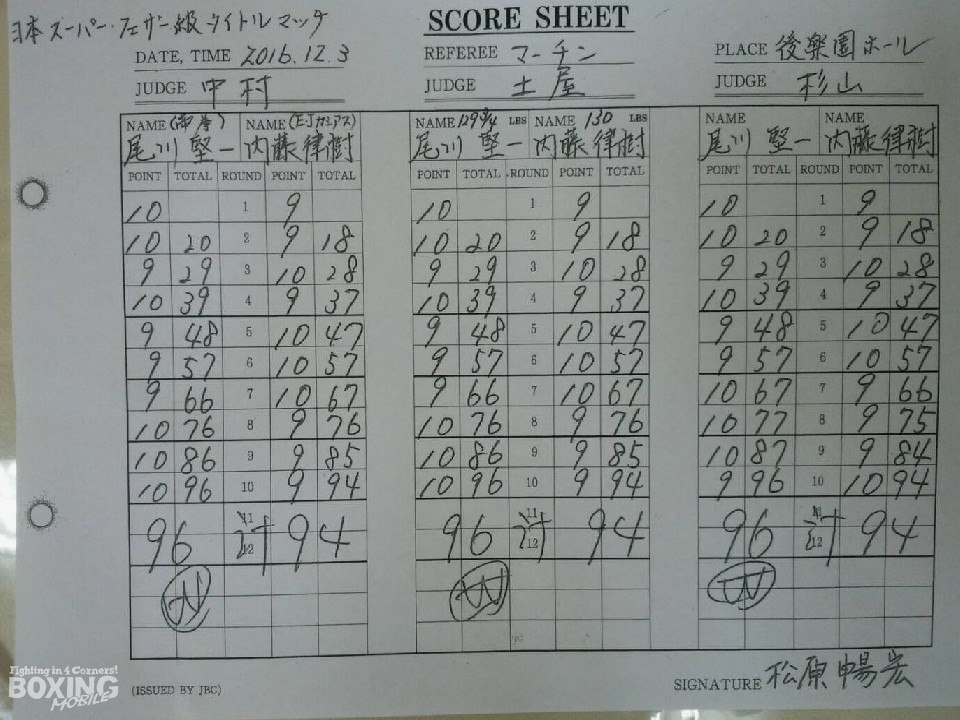 日本スーパー・フェザー級タイトルマッチ
SCORE SHEET
DATE, TIME 2016.12.3
REFEREE マーチン
PLACE 後楽園ホール
JUDGE 中村
JUDGE 土屋
JUDGE 杉山
NAME (帝拳) NAME (E&Jカシアス)
尾川 堅一 内藤律樹
POINT TOTAL ROUND POINT TOTAL
10 1 9
10 20 2 9 18
9 29 3 10 28
10 39 4 9 37
9 48 5 10 47
9 57 6 10 57
9 66 7 10 67
10 76 8 9 76
10 86 9 9 85
10 96 10 9 94
11
96 計 94
12
W
NAME 129 3/4 LBS NAME 130 LBS
尾川 堅一 内藤律樹
POINT TOTAL ROUND POINT TOTAL
10 1 9
10 20 2 9 18
9 29 3 10 28
10 39 4 9 37
9 48 5 10 47
9 57 6 10 57
9 66 7 10 67
10 76 8 9 76
10 86 9 9 85
10 96 10 9 94
11
96 計 94
12
W
NAME NAME
尾川 堅一 内藤律樹
POINT TOTAL ROUND POINT TOTAL
10 1 9
10 20 2 9 18
9 29 3 10 28
10 39 4 9 37
9 48 5 10 47
9 57 6 10 57
10 67 7 9 66
10 77 8 9 75
10 87 9 9 84
9 96 10 10 94
11
96 計 94
12
W
(ISSUED BY JBC)
SIGNATURE 松原暢宏
Fighting in 4 Corners!
BOXING
MOBILE